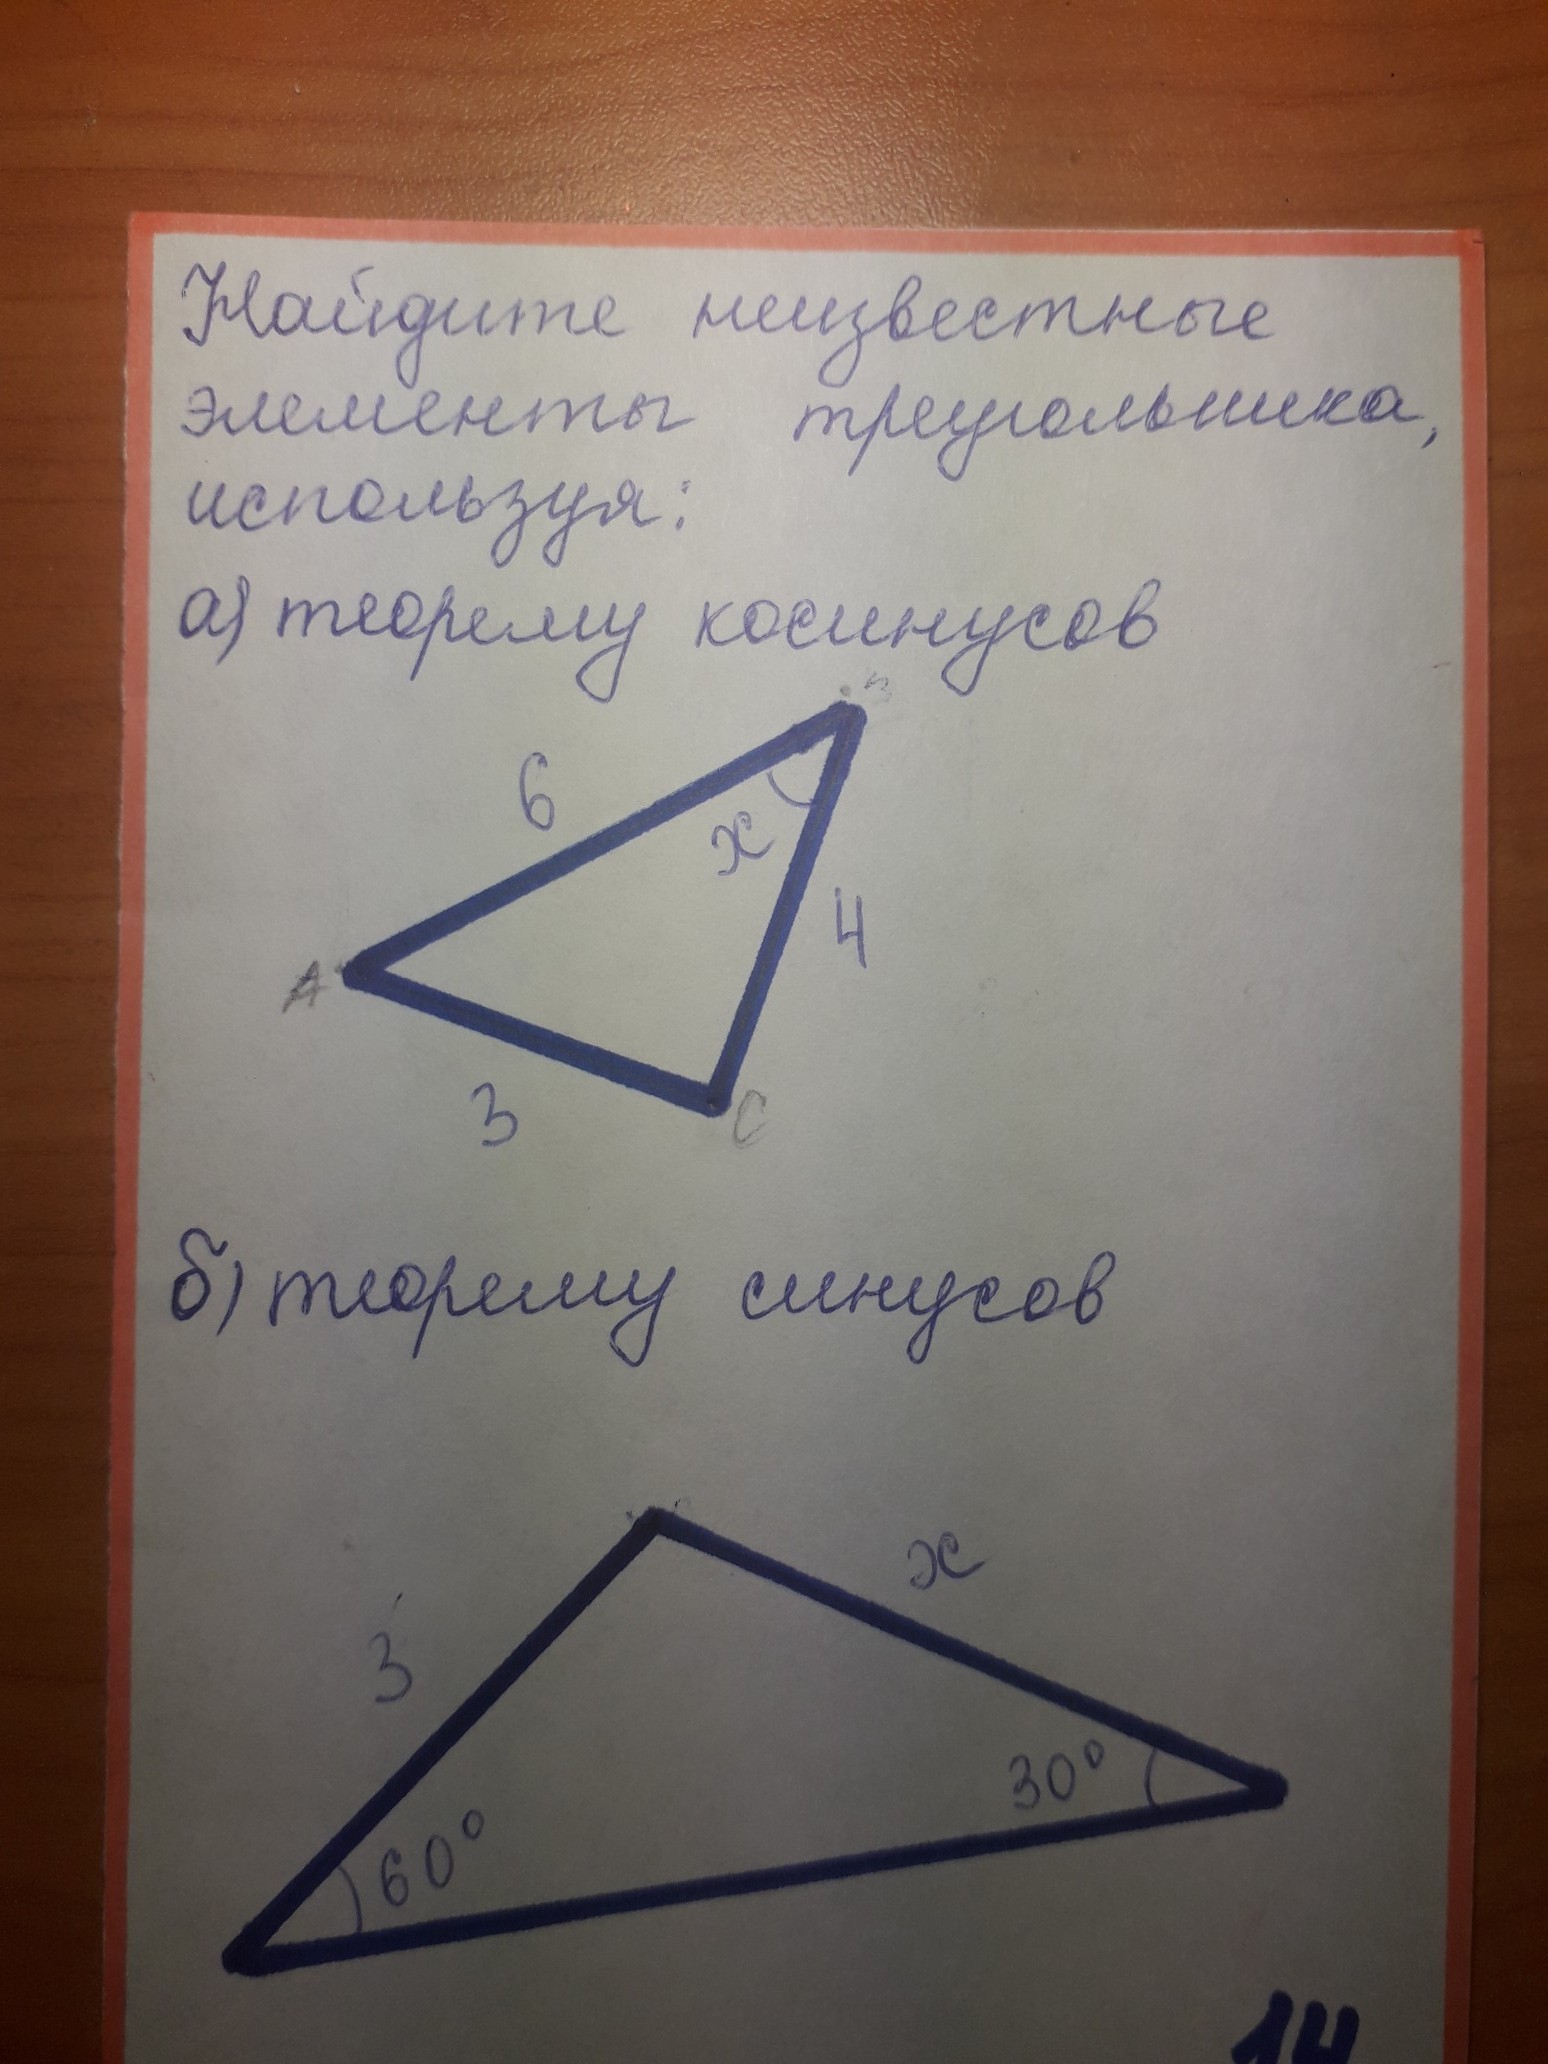 Найдите неизвестные
элементы треугольника,
используя:
а) теорему косинусов
В
6
x
4
А
3
С
б) теорему синусов
x
3
30°
60°
14